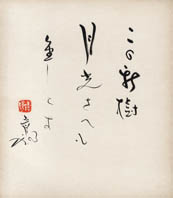 この新樹
月光さへも
重しとす